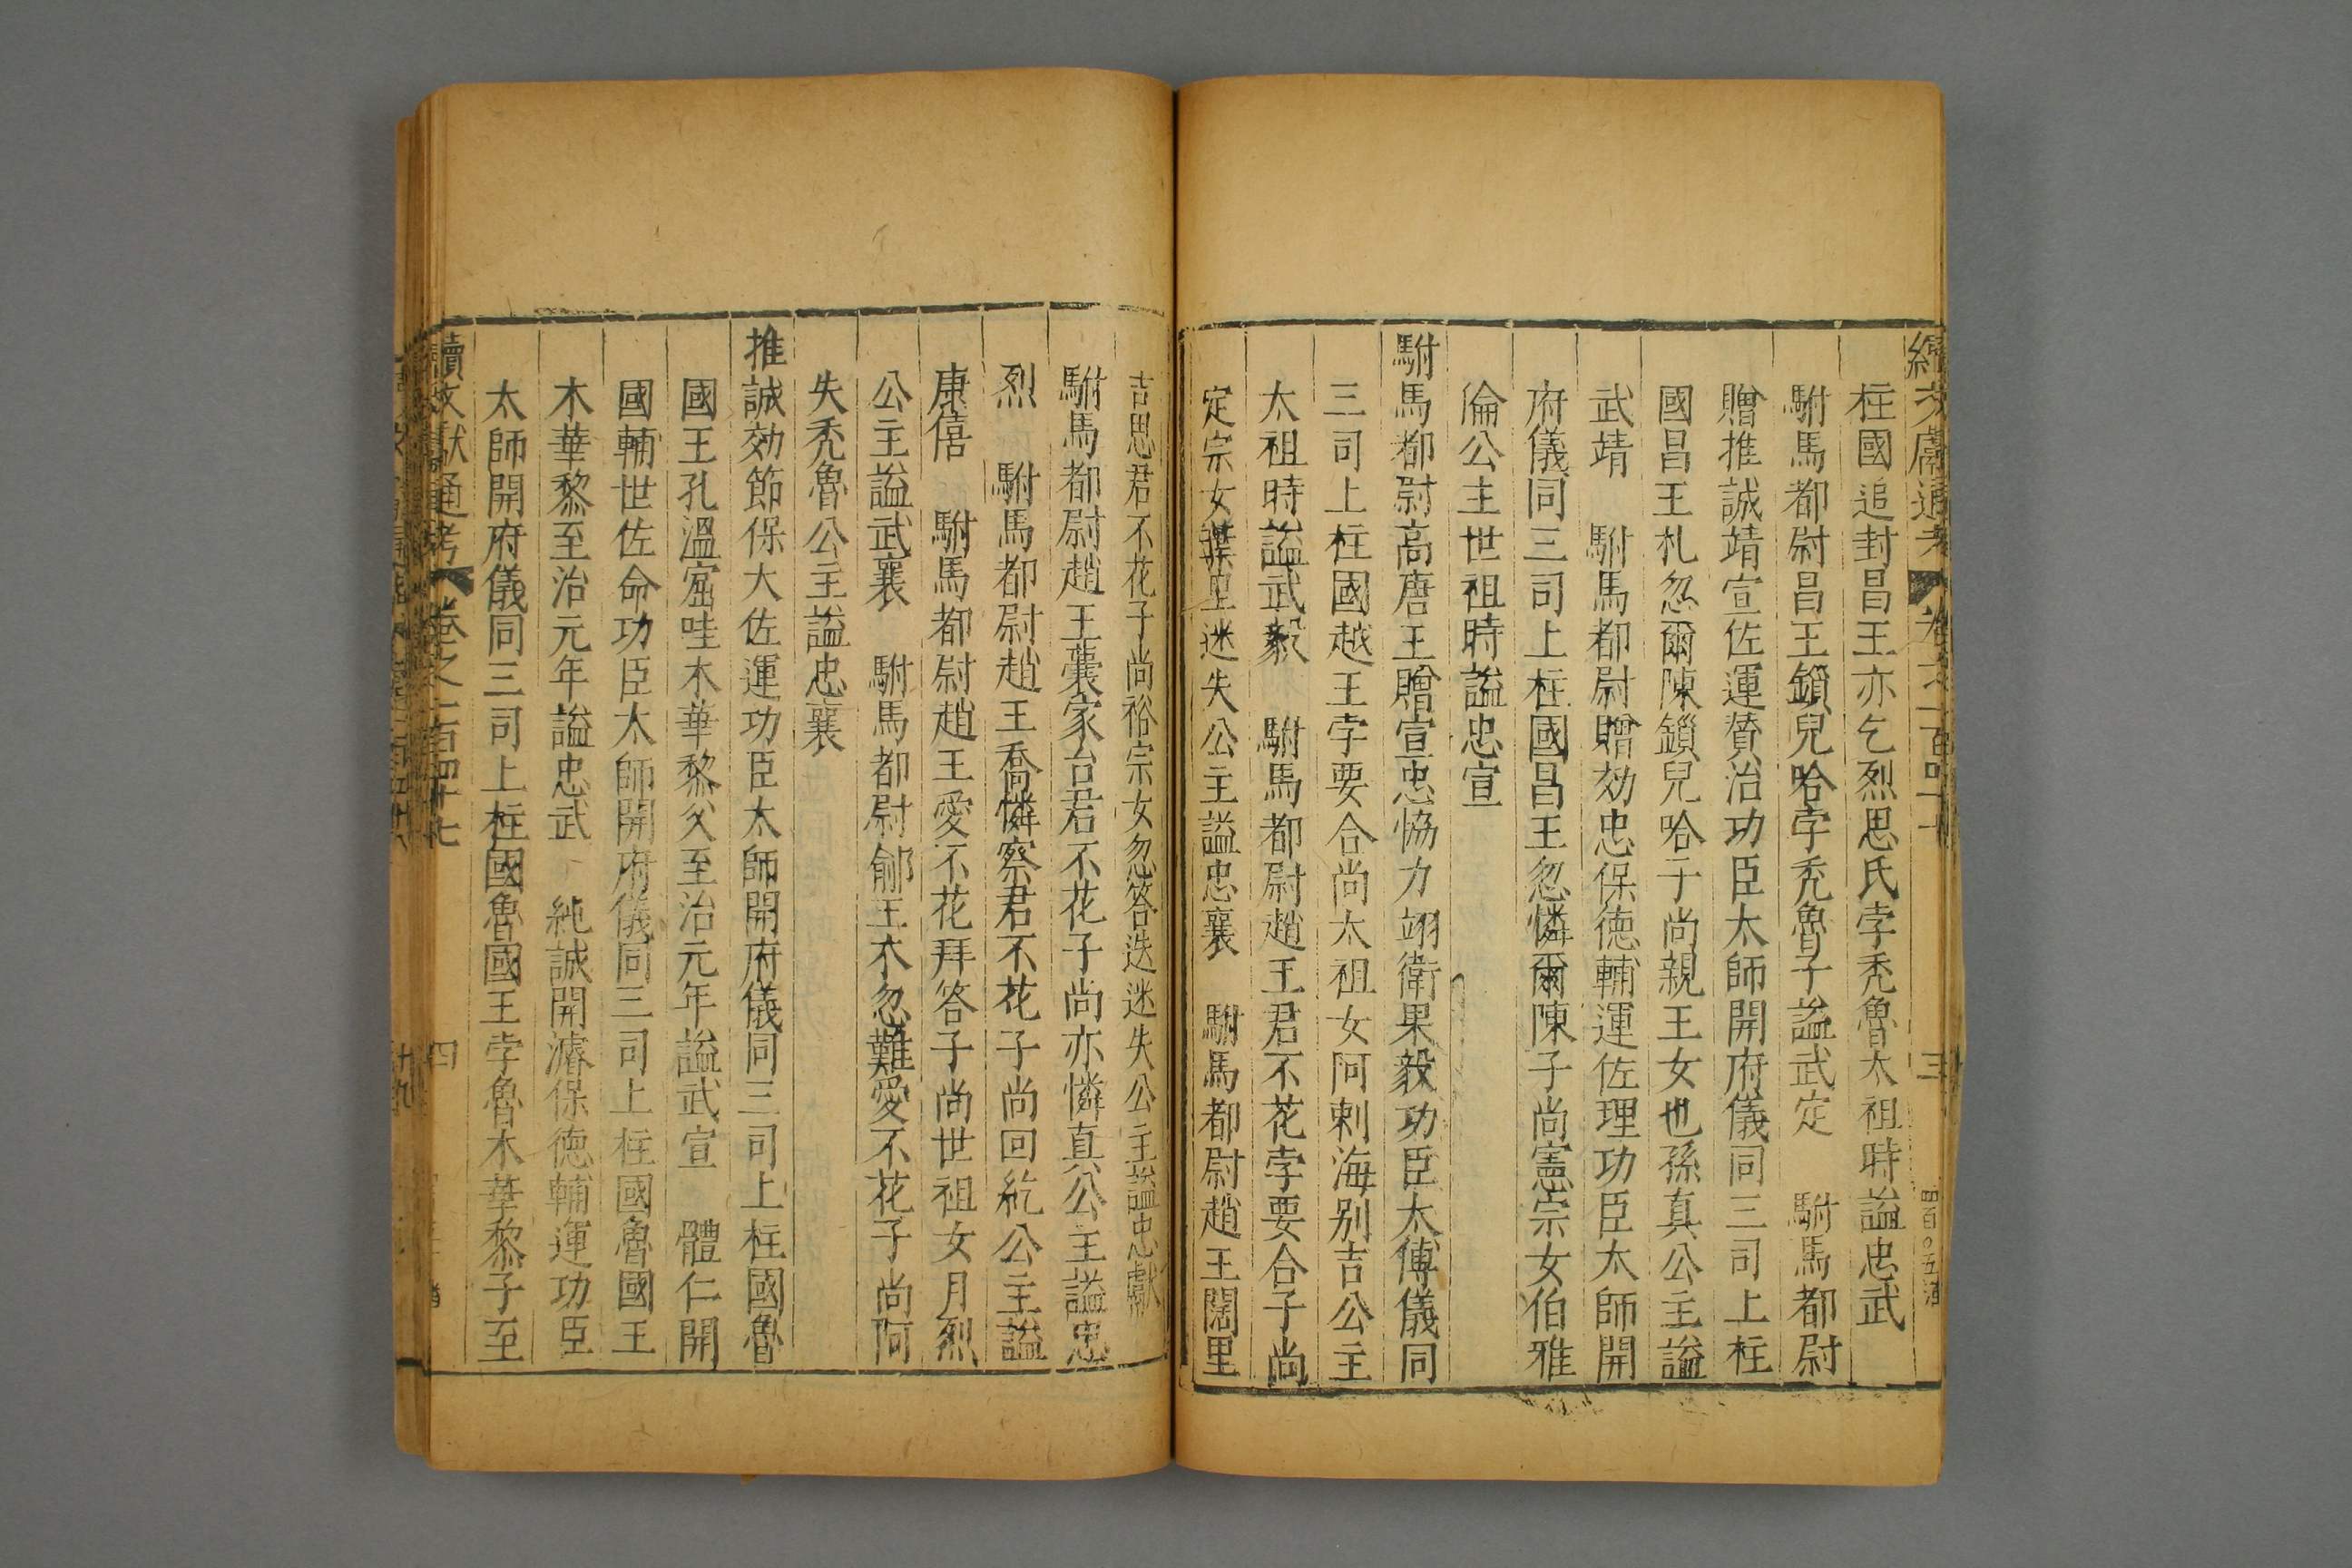 柱國追封昌王亦乞烈思氏孛禿魯太祖時謚忠武
駙馬都尉昌王鎻兒哈孛禿魯子謚武定　駙馬都尉
贈推誠靖宣佐運贊治功臣太師開府儀同三司上柱
國昌王札忽爾陳鎻兒哈子尚親王女也孫真公主謚
武靖　駙馬都尉贈效忠保德輔運佐理功臣太師開
府儀同三司上柱國昌王忽憐爾陳子尚憲宗女伯雅
倫公主世祖時謚忠宣
駙馬都尉高唐王贈宣忠恊力翊衛果毅功臣太傅儀同
三司上柱國越王孛要合尚太祖女阿剌海别吉公主
太祖時謚武毅　駙馬都尉趙王君不花孛要合子尚
定宗女葉里迷失公主謚忠襄　駙馬都尉趙王闊里
吉思君不花子尚裕宗女忽答迭迷失公主謚忠獻
駙馬都尉趙王囊家台君不花子尚亦憐真公主謚忠
烈　駙馬都尉趙王喬憐察君不花子尚回紇公主謚
康僖　駙馬都尉趙王愛不花拜答子尚世祖女月烈
公主謚武襄　駙馬都尉鄃王木忽難愛不花子尚阿
失禿魯公主謚忠襄
推誠効節保大佐運功臣太師開府儀同三司上柱國魯
國王孔溫窟哇木華黎父至治元年謚武宣　體仁開
國輔世佐命功臣太師開府儀同三司上柱國魯國王
木華黎至治元年謚忠武　純誠開濬保德輔運功臣
太師開府儀同三司上柱國魯國王孛魯木華黎子至
續文獻通考　卷之二百四十七　四